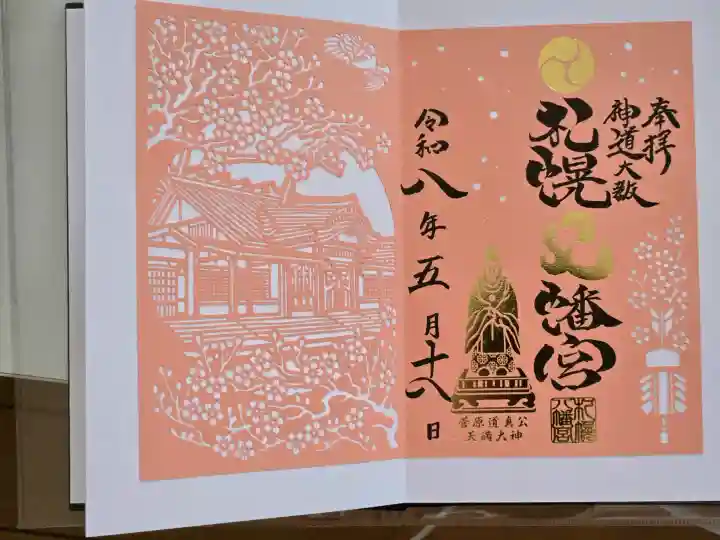 奉拝
神道大教
札幌八幡宮
菅原道真公
天満大神
札幌八幡宮
令和八年五月十八日